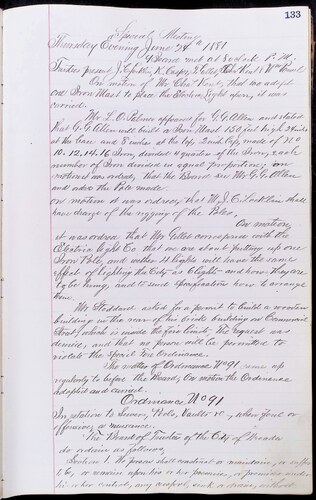 133
Special Meeting
Thursday Evening June 24th 1881
Board met at 8 o'clock P. M.
Trustees present J. Chas Kent & Wm
On motion of Mr Chas Kent, that we adopt
one Iron Mast to place the Electric Light upon, it was
carried.
Mr L. O. Palmer appeared for G. G. Allen and stated
that G. G. Allen will build a Iron Mast 150 feet high 2 feet
at the base and 8 inches at the top, 2nd top, made of No
10. 12, 14. 16 Iron, divided 4 quarters of the Iron, each
number of Iron divided in equal proportions, on
motion it was ordered, that the Board see Mr G. G. Allen
and order the Pole made.
on motion it was ordered, that Mr J. C. shall
have charge of the rigging of the Poles,
On motion
it was ordered that Mr Gillet correspond with the
Electric Light Co. that we are about putting up one
Iron Pole, and wether 4 lights will have the same
effect of lighting the City as 6 lights and how they are
to be hung, and to send specifications how to arrange
them.
Mr Stoddard asked for a permit to build a wooden
building in the rear of his brick building on Commercial
Street, which is inside the fire limits. The request was
denied, and that no person will be permitted to
violate the special Fire Ordinance.
The matter of Ordinance No 91 came up
regularly before the Board, On motion the Ordinance
adopted and carried.
Ordinance No 91
In relation to Sewers, Vaults &c, when foul or
offensive a nuisance.
The Board of Trustees of the City of
do ordain as follows,
Section 1. No person shall construct or maintain, or suffer
to be, or remain upon his or her premises, or premises under
his or her control, any cesspool, sink or drain, without